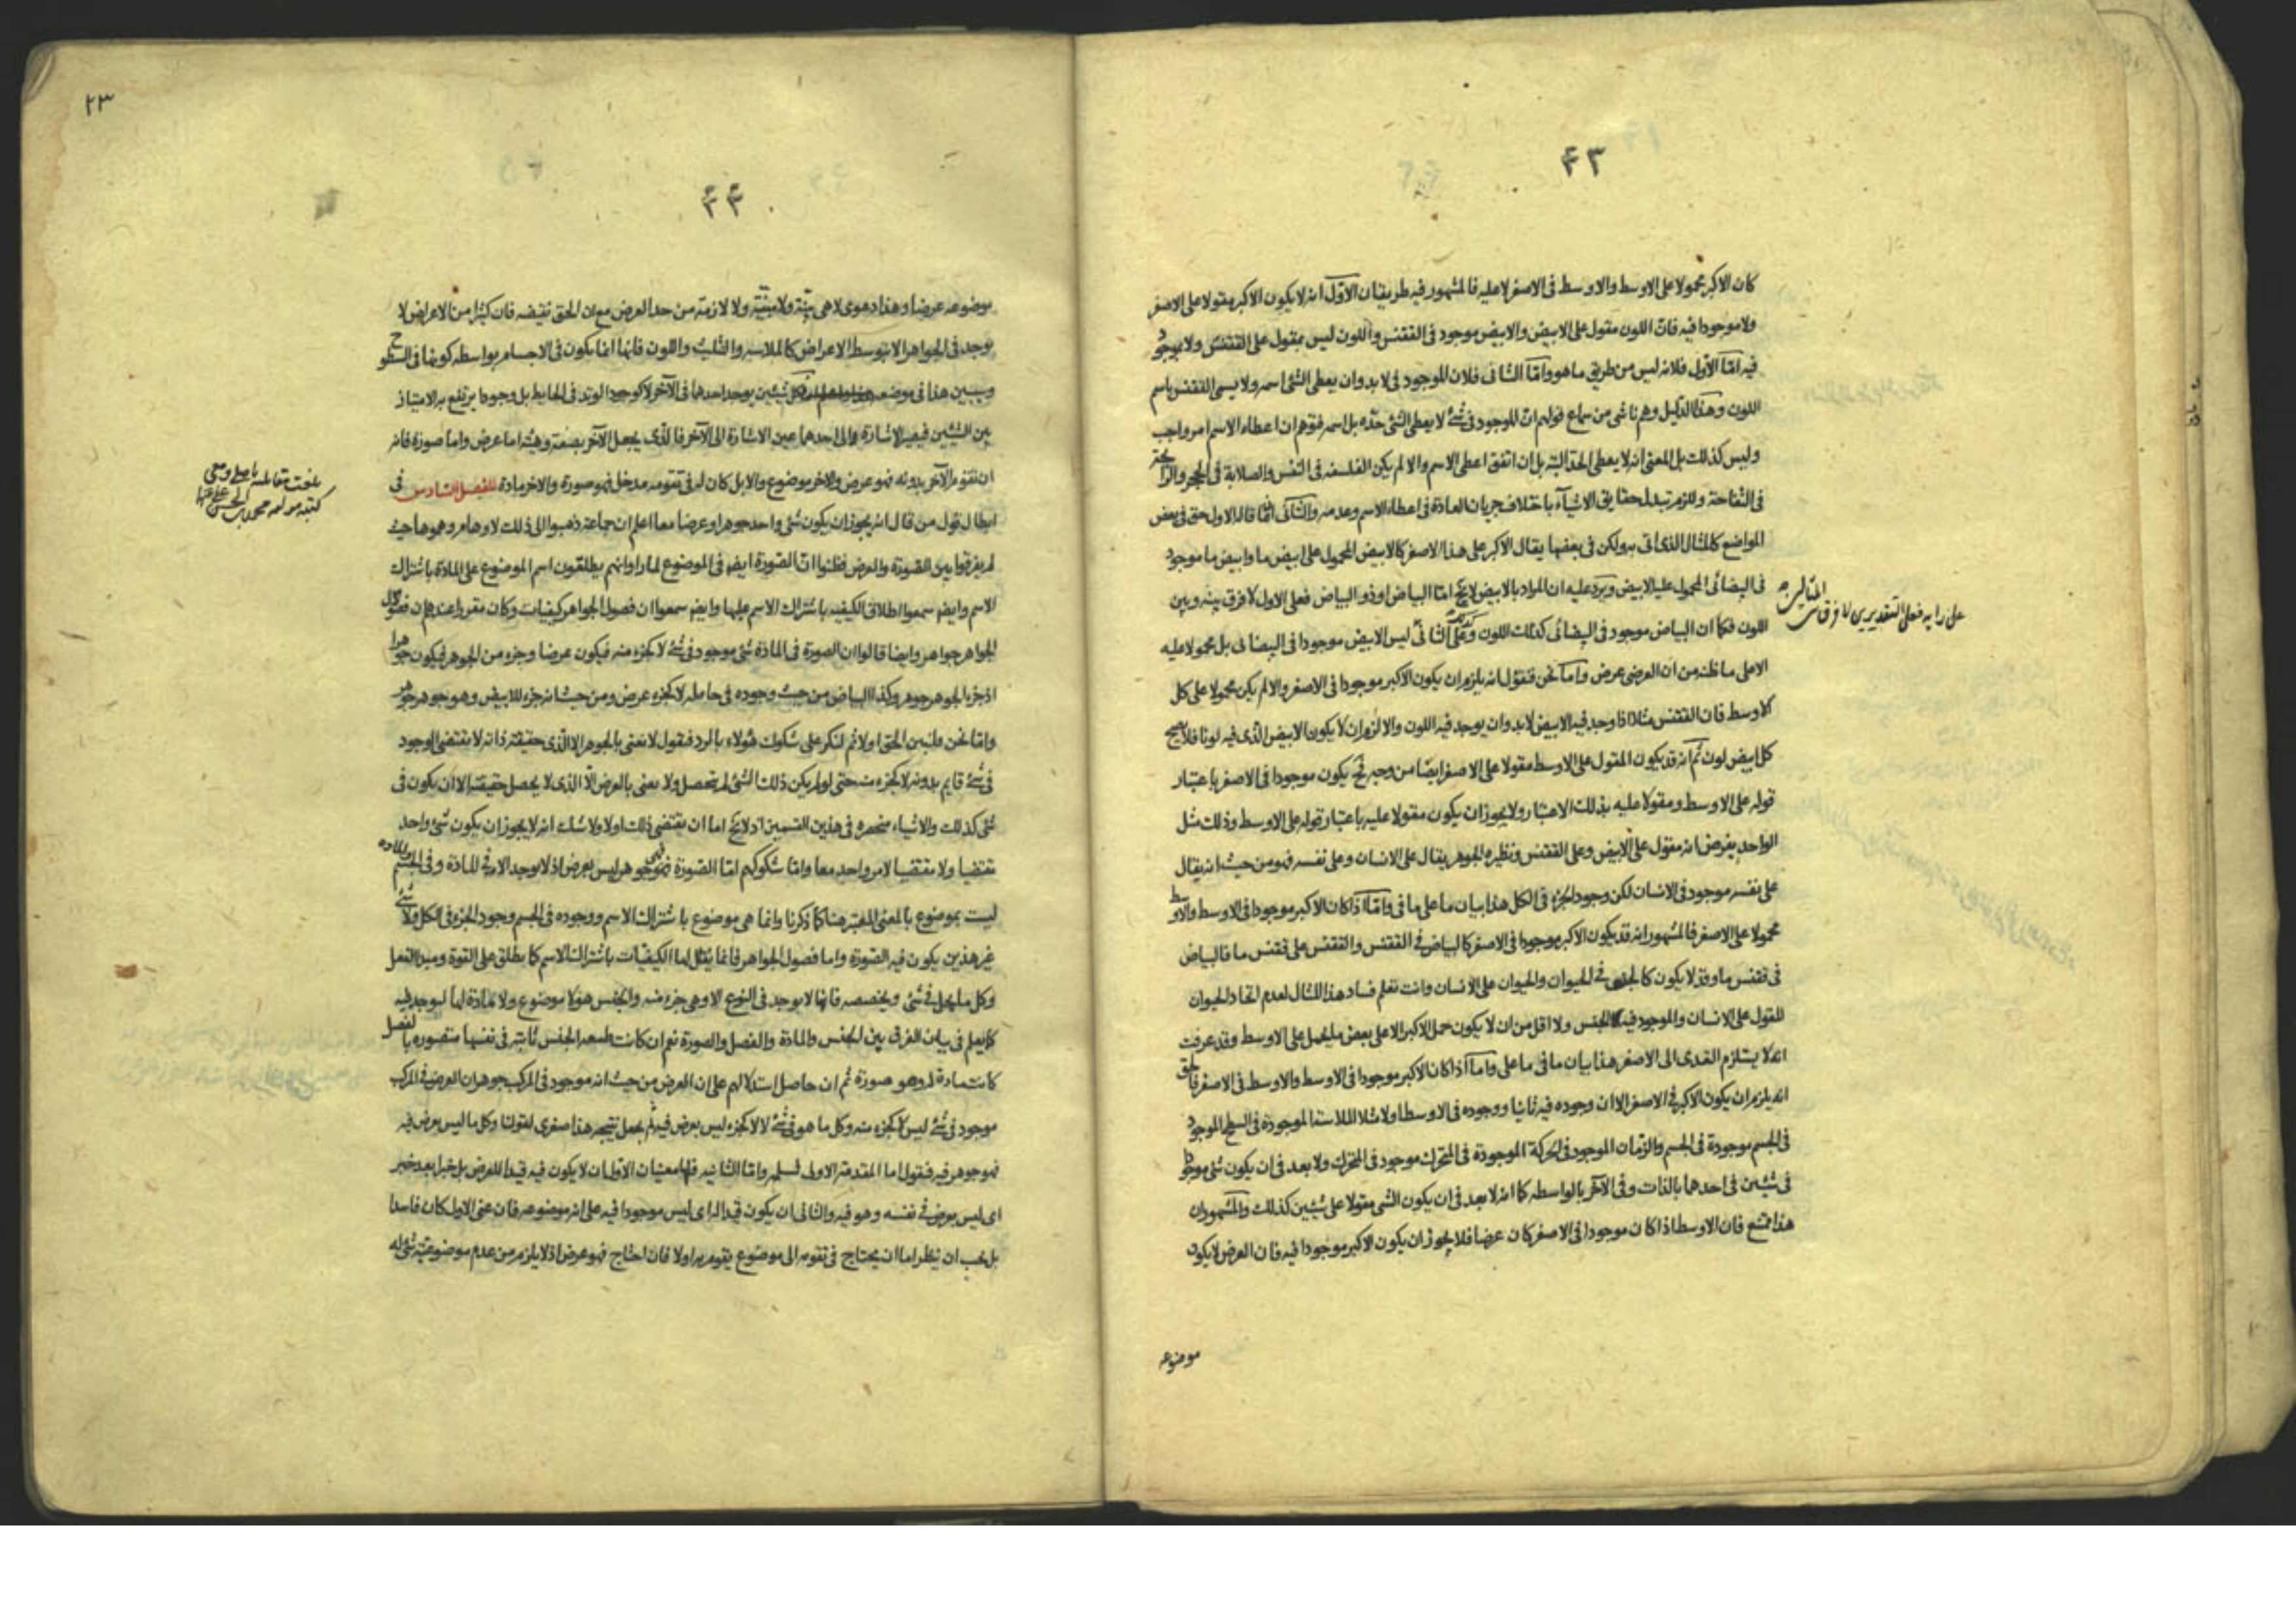 ۴۳
كان الاكبر محمولا على الاوسط والاوسط فى الاصغر لا عليه فالمشهور فيه طريقان الاوّل انه لا يكون الاكبر مقولا على الاصغر
ولا موجودا فيه فانّ اللون مقول على الابيض والابيض موجود فى الققنس واللون ليس بمقول على الققنس ولا موجود
فيه امّا الاوّل فلانه ليس من طريق ما هو وامّا الثانى فلان الموجود فى لا بد وان يعطى الشئ اسمه ولا يسمى الققنس باسم
اللون وهذا الدليل وهم ناشى من سماع قولهم انّ الموجود فى شئ لا يعطى الشئ حدّه بل اسمه فتوهم ان اعطاء الاسم امر واجب
وليس كذلك بل المعنى انه لا يعطى الحدّ البتة بل ان اتفق اعطى الاسم والا لم يكن الفلسفه فى النفس والصلابة فى الحجر والرائحة
فى التفاحة وللزم تبدل حقايق الاشيآء باختلاف جريان العادة فى اعطاء الاسم وعدمه والثانى انّما قاله الاول حق فى بعض
المواضع كالمثال الذى اتى به ولكن فى بعضها يقال الاكبر على هذا الاصغر كالابيض المحمول على ابيض ما وابيض ما موجود
فى البيضائى المحمول عليه الابيض ويرد عليه ان المراد بالابيض لا يخ امّا البياض او ذو البياض فعلى الاول لا فرق بينه وبين
اللون فكما ان البياض موجود فى البيضائى كذلك اللون وعلى الثانى ليس الابيض موجودا فى البيضائى بل محمولا عليه
الا على ما ظنه من ان العرضى عرض وامّا نحن فنقول انه يلزم ان يكون الاكبر موجودا فى الاصغر والا لم يكن محمولا على كل
الاوسط فان الققنس مثلا اذا وجد فيه الابيض لا بد وان يوجد فيه اللون والا لزم ان لا يكون الابيض الذى فيه لونا فلا يصح
كل ابيض لون ثمّ انه قد يكون المقول على الاوسط مقولا على الاصغر ايضا من وجه فح يكون موجودا فى الاصغر باعتبار
قوله على الاوسط ومقولا عليه بذلك الاعتبار ولا يجوز ان يكون مقولا عليه باعتبار قوله على الاوسط وذلك مثل
الواحد يفرض انه مقول على الابيض وعلى الققنس ونظيره الجوهر يقال على الانسان وعلى نفسه فهو من حيث انه يقال
على نفسه موجود فى الانسان لكن وجود الجزء فى الكل هذا بيان ما على ما فى وامّا اذا كان الاكبر موجودا فى الاوسط والاوسط
محمولا على الاصغر فالمشهور انه قد يكون الاكبر موجودا فى الاصغر كالبياض فى الققنس والققنس على ققنس ما فالبياض
فى ققنس ما وقد لا يكون كالجنس فى الحيوان والحيوان على الانسان وانت تعلم فساد هذا المثال لعدم اتحاد الحيوان
المقول على الانسان والموجود فيه الجنس ولا اقل من ان لا يكون حمل الاكبر الا على بعض ما يحمل على الاوسط وقد عرفت
انه لا يستلزم التعدى الى الاصغر هذا بيان ما فى ما على وامّا اذا كان الاكبر موجودا فى الاوسط والاوسط فى الاصغر فالحق
انه يلزم ان يكون الاكبر فى الاصغر الا ان وجوده فيه ثانيا ووجوده فى الاوسط اولا مثلا الملاسة الموجودة فى السطح الموجود
فى الجسم موجودة فى الجسم والزمان الموجود فى الحركة الموجودة فى المتحرك موجود فى المتحرك ولا بعد فى ان يكون شئ موجودا
فى شيئين فى احدهما بالذات وفى الآخر بالواسطه كما انه لا بعد فى ان يكون الشى مقولا على شيئين كذلك والمشهور ان
هذا ممتنع فان الاوسط اذا كان موجودا فى الاصغر كان عرضا فلا يجوز ان يكون الاكبر موجودا فيه فان العرض لا يكون
موضوعه
على رايه فعلى التقديرين لا فرق
۲۳
۴۴
موضوعه عرضا وهذا دعوى لا هى بيّنة ولا مبيّنة ولا لازمة من حد العرض مع ان الحق نقيضه فان كثيرا من الاعراض لا
يوجد فى الجواهر الا بتوسط الاعراض كالملاسه والتثليث واللون فانها انما يكون فى الاجسام بواسطه كونها فى السطوح
وسيبين هذا فى موضعه كل شيئين يوجد احدهما فى الآخر لا كوجود الوتد فى الحايط بل وجودا يرتفع به الامتياز
بين الشيئين فيصير الاشارة الى احدهما عين الاشارة الى الآخر فالذى يجعل الآخر بصفة وهيئة اما عرض واما صورة فانه
ان تقوم الآخر بدونه فهو عرض والاخر موضوع والا بل كان له فى تقومه مدخل فهو صورة والاخر مادة الفصل السادس فى
ابطال قول من قال انه يجوز ان يكون شئ واحد جوهرا وعرضا معا اعلم ان جماعة ذهبوا الى ذلك لاوهام وهموها حيث
لم يفرقوا بين الصورة والعرض فظنوا انّ الصورة ايضا فى الموضوع لما راوا انهم يطلقون اسم الموضوع على المادة باشتراك
الاسم وايضا سمعوا اطلاق الكيفيه باشتراك الاسم عليها وايضا سمعوا ان فصول الجواهر كيفيات وكان مقررا عندهم ان فصول
الجواهر جواهر وايضا قالوا ان الصورة فى المادة شئ موجود فى شئ لا كجزء منه فيكون عرضا وجزء من الجوهر فيكون جوهرا
اذ جزء الجوهر جوهر وكذا البياض من حيث وجوده فى حامله لا كجزء عرض ومن حيث انه جزء للابيض وهو جوهر جوهر
وامّا نحن فلنبين الحق اولا ثم لنكر على شكوك هؤلاء بالرد فنقول لا نعنى بالجوهر الا الذى حقيقته ذاته لا يقتضى الوجود
فى شئ قايم بدونه لا كجزء منه حتى لو لم يكن ذلك الشئ لم تحصل ولا نعنى بالعرض الّا الذى لا يحصل حقيقته الا ان يكون فى
شئ كذلك والاشياء منحصرة فى هذين القسمين اذ لا يخ اما ان يقتضى ذلك اولا ولا شك انه لا يجوز ان يكون شئ واحد
مقتضيا ولا مقتضيا لامر واحد معا وامّا شكوكهم امّا الصورة فهى جوهر ليس بعرض اذ لا يوجد الا فى المادة وفى الجسم والمادة
ليست بموضوع بالمعنى المعتبر هنا كما ذكرنا وانما هى موضوع باشتراك الاسم ووجوده فى الجسم وجود الجزء فى الكل ولا شئ
غير هذين يكون فيه الصورة واما فصول الجواهر فانما يقال لها الكيفيات باشتراك الاسم كما يطلق على القوة ومبدا الفعل
وكل ما يحل فى شئ ويخصصه فانها لا يوجد فى النوع الا وهى جزء منه والجنس هو لا موضوع ولا مادة لها ليوجد فيه
كما يعلم فى بيان الفرق بين الجنس والمادة والفصل والصورة نعم ان كانت طبيعة الجنس ثابتة فى نفسها متصوره بالفصل
كانت مادة له وهو صورة ثم ان حاصل استدلالهم على ان العرض من حيث انه موجود فى المركب جوهر ان العرض فى المركب
موجود فى شئ ليس لا كجزء منه وكل ما هو فى شئ لا لا كجزء ليس بعرض فيه ثم يجعل نتيجه هذا صغرى لقولنا وكل ما ليس بعرض فيه
فهو جوهر فيه فنقول اما المقدمة الاولى فسلم واما الثانيه فلها معنيان الاول ان لا يكون فيه قيدا للعرض بل خبرا بعد خبر
اى ليس بعرض فى نفسه وهو فيه والثانى ان يكون قيدا له اى ليس موجودا فيه على انه موضوعه فان عنى الاول كان فاسدا
بل يجب ان ينظر اما ان يحتاج فى تقومه الى موضوع يتقوم به اولا فان احتاج فهو عرض اذ لا يلزم من عدم موضوعيّة شئ له
بلغت مقابلة باصله وسعى
كتبه مولفه محمد بن الحسن عفى عنهما